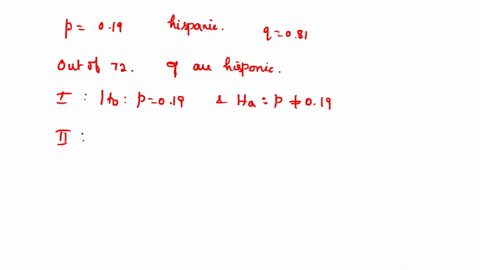 p = 0.19 hispanic. q = 0.81
Out of 72. 9 are hisponic.
I : Ho : p = 0.19 & Ha : p ≠ 0.19
II :